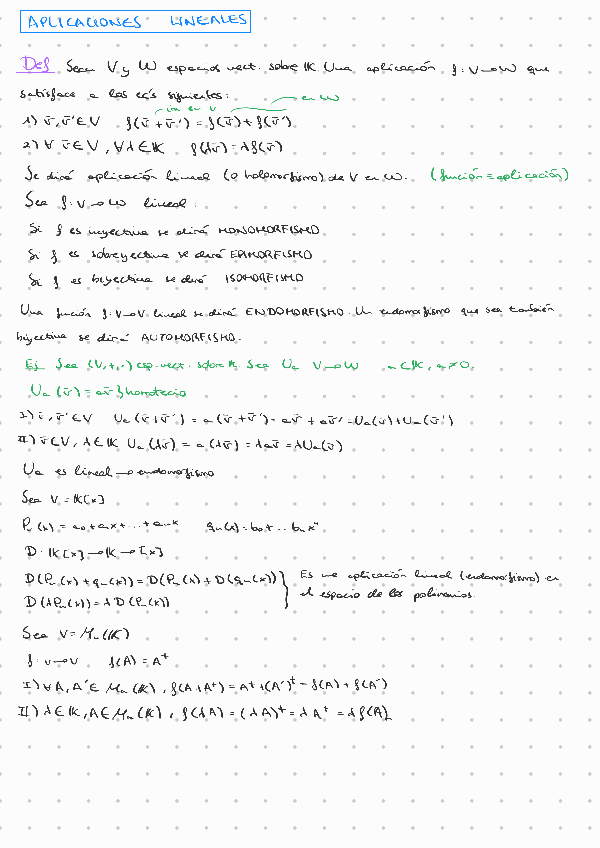 APLICACIONES LINEALES
Def Sean V y W espacios vect. sobre K. Una aplicación f: V→W que
satisface a las cos siguientes:
en W
1) v̄, v̄'∈V f(v̄ + v̄') = f(v̄) + f(v̄')
2) ∀ v̄∈V, ∀λ∈K f(λv̄) = λf(v̄)
Se dirá aplicación lineal (o holomorfismo) de V en W. (función = aplicación)
Sea f: V→W lineal:
Si f es inyectiva se dirá MONOMORFISMO
Si f es sobreyectiva se dirá EPIMORFISMO
Si f es biyectiva se dirá ISOMORFISMO
Una función f: V→V lineal se dirá ENDOMORFISMO. Un endomorfismo que sea también
biyectiva se dirá AUTOMORFISMO.
Ej Sea (V,+,·) esp. vect. sobre K Sea Ua V→W a∈K, a≠0.
Ua(v̄) = av̄ } homotecia
I) v̄, v̄'∈V Ua(v̄+v̄') = a(v̄+v̄') = av̄ + av̄' = Ua(v̄)+Ua(v̄')
II) v̄∈V, λ∈K Ua(λv̄) = a(λv̄) = λav̄ = λUa(v̄)
Ua es lineal → endomorfismo
Sea V = K[x]
Pn(x) = a0+a1x+...+anx qn(x) = b0+...bnxⁿ
D: K[x]→K→[x]
D(Pn(x) + qn(x)) = D(Pn(x) + D(qn(x)) } Es una aplicación lineal (endomorfismo) en
D(λPn(x)) = λ D(Pn(x)) el espacio de los polinomios.
Sea V = Mn(K)
f: V→V f(A) = Aᵗ
I) ∀A, A'∈ Mn(K), f(A+A') = Aᵗ+(A')ᵗ = f(A) + f(A')
II) λ∈K, A∈Mn(K), f(λA) = (λA)ᵗ = λAᵗ = λf(A)